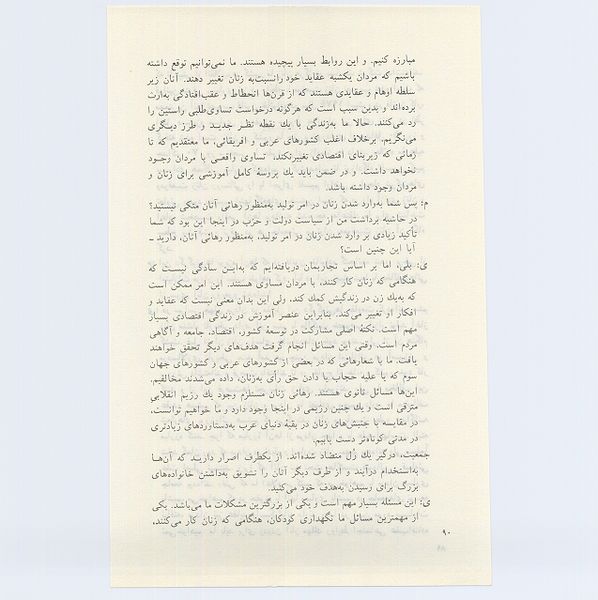 مبارزه کنیم. و این روابط بسیار پیچیده هستند. ما نمی‌توانیم توقع داشته
باشیم که مردان یکشبه عقاید خود رانسبت‌به زنان تغییر دهند. آنان زیر
سلطه اوهام و عقایدی هستند که از قرن‌ها انحطاط و عقب‌افتادگی به‌ارث
برده‌اند و بدین سبب است که هرگونه درخواست تساوی‌طلبی راستین را
رد می‌کنند. حالا ما به‌زندگی با یك نقطه نظر جدید و طرز دیگری
می‌نگریم. برخلاف اغلب کشورهای عربی و افریقائی، ما معتقدیم که تا
زمانی که زیربنای اقتصادی تغییرنکند، تساوی واقعی با مردان وجود
نخواهد داشت. و در ضمن باید یك پروسهٔ کامل آموزشی برای زنان و
مردان وجود داشته باشد.
م: پس شما به‌وارد شدن زنان در امر تولید به‌منظور رهائی آنان متکی نیستید؟
در حاشیه برداشت من از سیاست دولت و حزب در اینجا این بود که شما
تأکید زیادی بر وارد شدن زنان در امر تولید، به‌منظور رهائی آنان، دارید ـ
آیا این چنین است؟
ی: بلی، اما بر اساس تجاربمان دریافته‌ایم که به‌این سادگی نیست که
هنگامی که زنان کار کنند، با مردان مساوی هستند. این امر ممکن است
که به‌یك زن در زندگیش کمك کند. ولی این بدان معنی نیست که عقاید و
افکار او تغییر می‌کند. بنابراین عنصر آموزش در زندگی اقتصادی بسیار
مهم است. نکتهٔ اصلی مشارکت در توسعهٔ کشور، اقتصاد، جامعه و آگاهی
مردم است. وقتی این مسائل انجام گرفت هدف‌های دیگر تحقق خواهند
یافت. ما با شعارهائی که در بعضی از کشورهای عربی و کشورهای جهان
سوم که با علیه حجاب یا دادن حق رأی به‌زنان، داده می‌شدند مخالفیم.
این‌ها مسائل ثانوی هستند. رهائی زنان مستلزم وجود یك رژیم انقلابی
مترقی است و یك چنین رژیمی در اینجا وجود دارد و ما خواهیم توانست،
در مقایسه با جنبش‌های زنان در بقیهٔ دنیای عرب به‌دستاوردهای زیادتری
در مدتی کوتاه‌تر دست یابیم.
جمعیت، درگیر یك رُل متضاد شده‌اند. از یکطرف اصرار دارید که آن‌ها
به‌استخدام درآیند و از طرف دیگر آنان را تشویق به‌داشتن خانواده‌های
بزرگ برای رسیدن به‌هدف خود می‌کنید.
ی: این مسئله بسیار مهم است و یکی از بزرگترین مشکلات ما می‌باشد. یکی
از مهمترین مسائل ما نگهداری کودکان، هنگامی که زنان کار می‌کنند،
۹۰